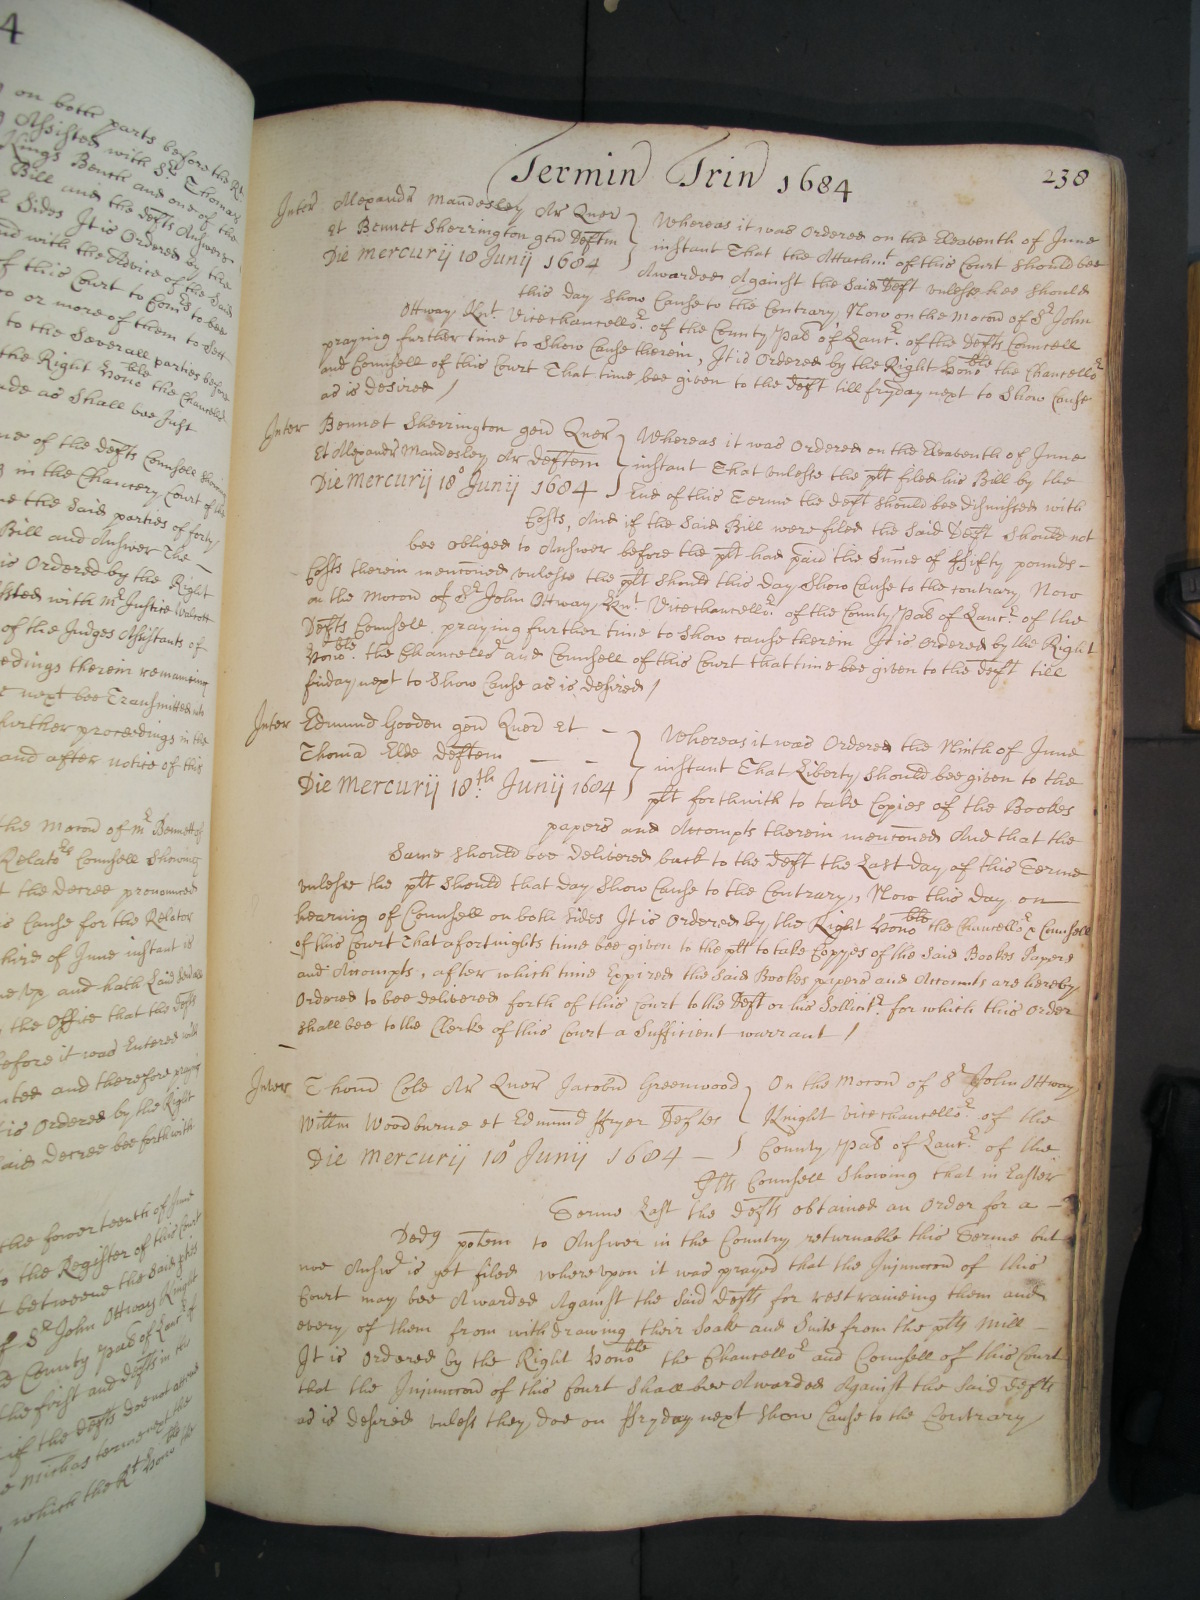 4
on both parts before the Rt
Assisted with Sr Thomas
Kings Bench and one of the
Bill and the defts Answere
Sides It is Ordered by the
and with the Advice of the said
of this Court to Comrs to bee
or more of them to Sett
to the Severall parties before
the Right honoble the Chancellr
as Shall bee Just
of the defts Counsell
in the Chancery Court of
the Said parties of forty
Bill and Answer The
is Ordered by the Right
with Mr Justice
of the Judges Assistants of
proceedings therein remaining
next bee Transmitted
further proceedings in the
and after notice of this
the Mocon of Mr Bennett of
Relators Counsell Showing
the decree pronounced
Cause for the Relator
third of June instant is
up and hath Laid
the Office that the defts
before it was Entered
and therefore praying
is Ordered by the Right
said decree bee forthwith
the fowerteenth of June
to the Register of this Court
betweene the said pties
of Sr John Ottway Knight
County Pal of Lancr of
the first and defts in the
if the defts doe not attend
Michas terme next the
which the Rt Honoble the
Termin Trin 1684
238
Inter Alexandr Mandesley Ar Quer
et Bennet Sherrington gen Deftm
Die Mercurij 18 Junij 1684
Whereas it was Ordered on the Eleaventh of June
instant That the Attachmt of this Court should bee
Awarded Against the Said Deft unlesse hee should
this day show Cause to the Contrary, Now on the Mocon of Sr John
Ottway Knt Vicechancellor of the County Pal of Lancr of the Defts Councell
praying further time to Show Cause therein, It is Ordered by the Right Honoble the Chancellor
and Counsell of this Court That time bee given to the Deft till fryday next to Show Cause
as is desired /
Inter Bennet Sherrington gen Quer
Et Alexandr Mandesley Ar Deftem
Die Mercurij 18o Junij 1684
Whereas it was Ordered on the Eleaventh of June
instant That unlesse the plt filed his Bill by the
End of this Terme the Deft should bee dismissed with
Costs, And if the Said Bill were filed the Said Deft should not
bee obliged to Answer before the plt had paid the Sume of ffifty pounds -
Costs therein menconed unlesse the plt should this day show Cause to the contrary Now
on the Mocon of Sr John Ottway, Knt Vicechancellor of the County Pal of Lancr of the
Defts Counsell praying further time to Show cause therein It is Ordered by the Right
Honoble the Chancellor and Counsell of this Court that time bee given to the Deft till
friday next to Show Cause as is desired /
Inter Edmund Gooden gen Quer et -
Thoma Elde Deftem
Die Mercurij 18th Junij 1684
Whereas it was Ordered the Ninth of June
instant That Liberty should bee given to the
plt forthwith to take Copies of the Bookes
papers and Accompts therein menconed And that the
Same should bee delivered back to the Deft the Last day of this Terme
unlesse the plt should that day show Cause to the Contrary, Now this day on
hearing of Counsell on both sides It is Ordered by the Right Honoble the Chancellor & Counsell
of this Court That a fortnights time bee given to the plt to take Coppyes of the Said Bookes Papers
and Accompts, after which time Expired the Said Bookes papers and Accounts are hereby
Ordered to bee delivered forth of this Court to the Deft or his Sollicitr for which this Order
shall bee to the Clerke of this Court a Sufficient warrant /
Inter Thom Cole Ar Quer Jacobu Greenwood
Willm Woodburne et Edmund ffryer Deftes
Die Mercurij 18o Junij 1684 -
On the Mocon of Sr John Ottway
Knight Vicechancellor of the
County Pal of Lancr of the
Plts Counsell Showing that in Easter
Terme Last the Defts obtained an Order for a -
Ded9 potem to Answer in the Country returnable this Terme but
noe Answr is yet filed whereupon it was prayed that the Injunccon of this
Court may bee Awarded Against the Said Defts for restraineing them and
every of them from withdrawing their Soake and Suite from the plts Mill -
It is Ordered by the Right Honoble the Chancellor and Counsell of this Court
that the Injunccon of this Court Shall bee Awarded Against the Said Defts
as is desired unless they doe on ffryday next show Cause to the Contrary